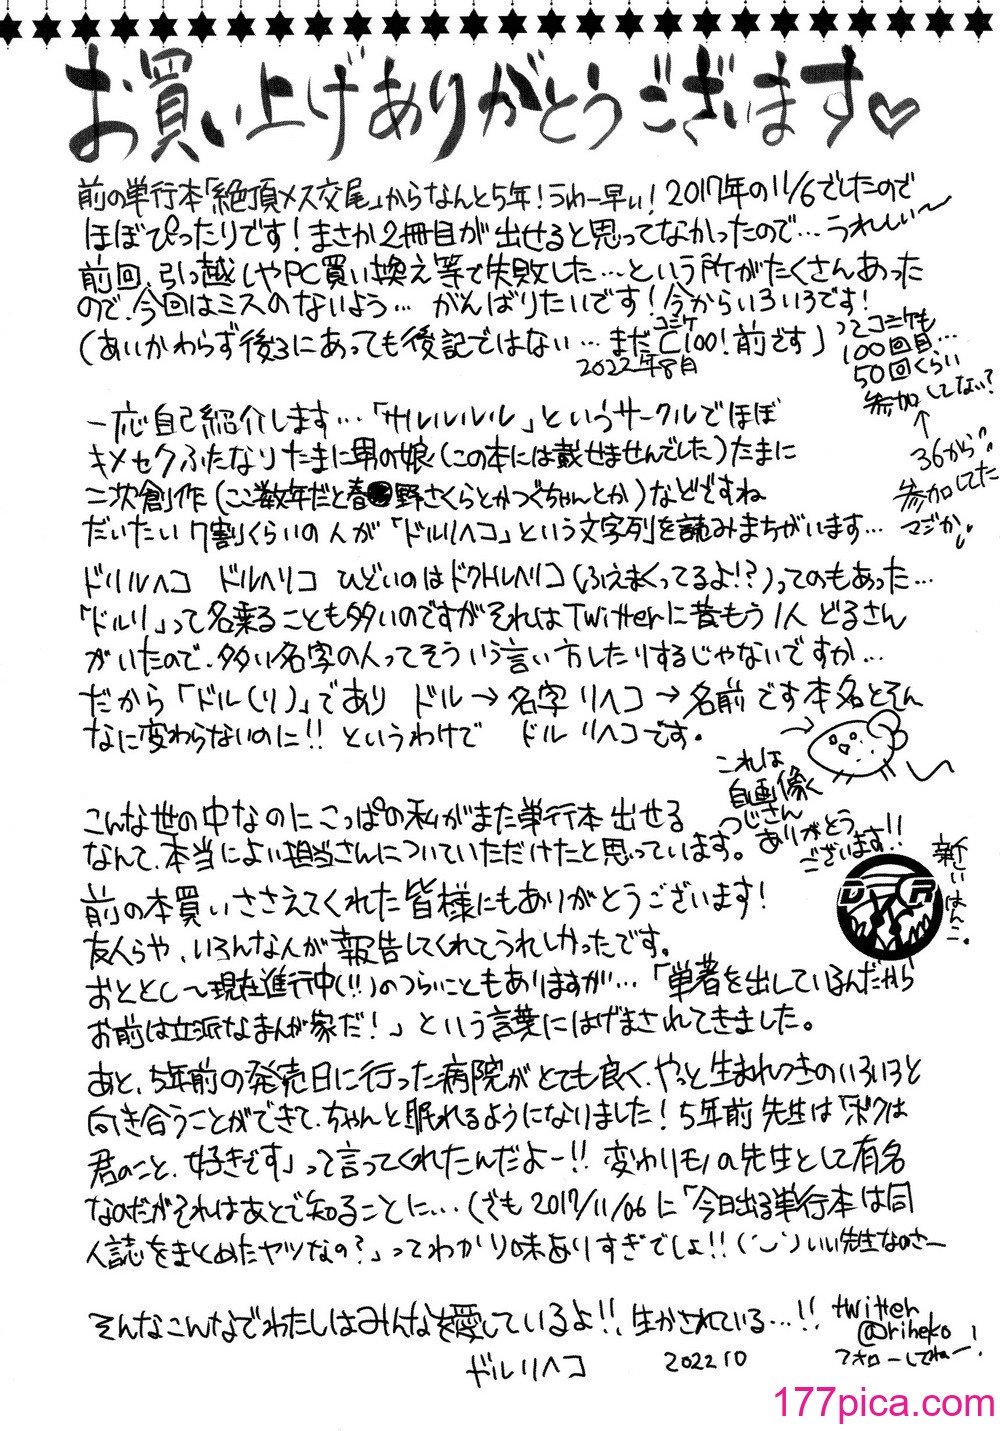 お買い上げありがとうございます♡
前の単行本「絶頂メス交尾」からなんと5年!うわー早い! 2017年の11/6でしたので
ほぼぴったりです!まさか2冊目が出せると思ってなかったので…うれしい〜
前回、引っ越しやPC買い換え等で失敗した…という所がたくさんあった
ので、今回はミスのないよう… がんばりたいです!今からいろいろです!
(あいかわらず後ろにあっても後記ではない…まだC100!前です)
コミケ
2022年8月
ってコミケも
100回目…
50回くらい
参加してない?
↑
36から
参加してた
マジか
一応自己紹介します…「サルルルルル」というサークルでほぼ
キメセクふたなりたまに男の娘(この本には載せませんでした)たまに
二次創作(ここ数年だと春野さくらとかつぐちゃんとか)などですね
だいたい7割くらいの人が「ドルリヘコ」という文字列を読みまちがいます…
ドリルヘコ ドルヘリコ ひどいのはドクトルヘリコ(ふえまくってるよ!?)ってのもあった…
「ドルリ」って名乗ることも多いのですがそれはTwitterに昔もう1人 どるさん
がいたので、多い名字の人ってそういう言い方したりするじゃないですか…
だから「ドル(リ)」であり ドル→名字 リヘコ→名前です本名とそん
なに変わらないのに!! というわけで ドル リヘコです。
→
これは
自画像く
つじさん
ありがとう
ございます!!
こんな世の中なのにこっぱの私がまた単行本出せる
なんて、本当によい担当さんについていただけたと思っています。
新しいはんこ。
D R
前の本買いささえてくれた皆様にもありがとうございます!
友人らや、いろんな人が報告してくれてうれしかったです。
おととし〜現在進行中(!!)のつらいこともありますが…「単著を出しているんだから
お前は立派なまんが家だ!」という言葉にはげまされてきました。
あと、5年前の発売日に行った病院がとても良く、やっと生まれつきのいろいろと
向き合うことができて、ちゃんと眠れるようになりました!5年前先生は「ボクは
君のこと、好きです」って言ってくれたんだよー!! 変わりモノの先生として有名
なのだがそれはあとで知ることに…(でも2017/11/06に「今日出る単行本は同
人誌をまとめたヤツなの?」ってわかり味ありすぎでしょ!!(˙ᵕ˙)いい先生なのさー
そんなこんなでわたしはみんなを愛しているよ!!、生かされている…!!
twitter
@riheko
フォローしてねー!
ドルリヘコ 2022 10
177pica.com